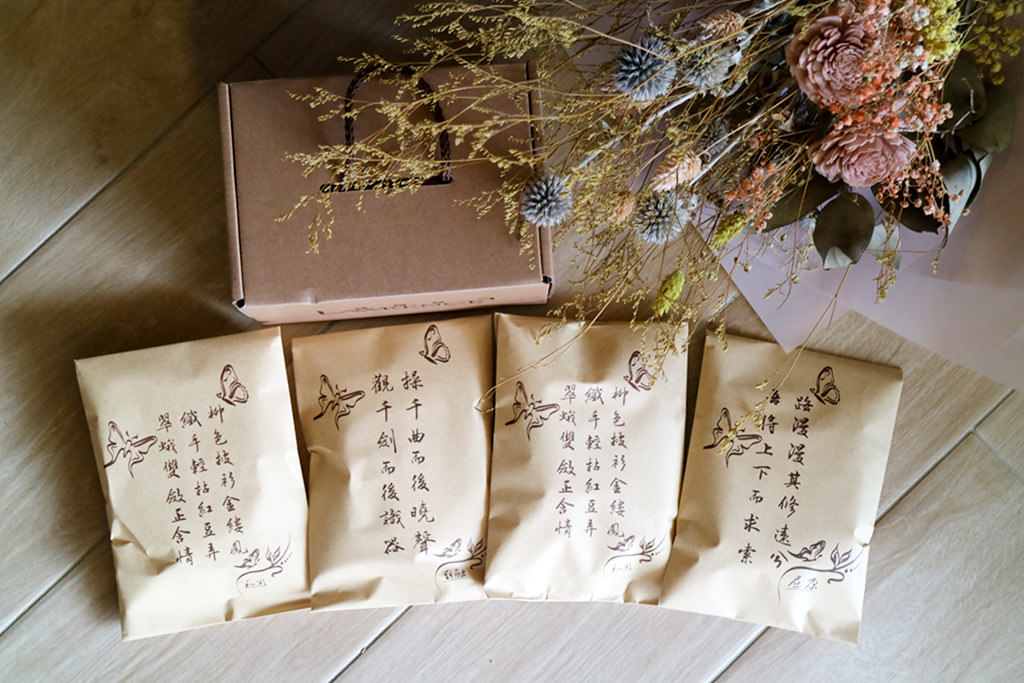 柳色披衫金縷鳳
纖手輕拈紅豆弄
翠蛾雙斂正含情
和凝
操千曲而後曉聲
觀千劍而後識器
劉勰
柳色披衫金縷鳳
纖手輕拈紅豆弄
翠蛾雙斂正含情
和凝
路漫漫其修遠兮
吾將上下而求索
屈原